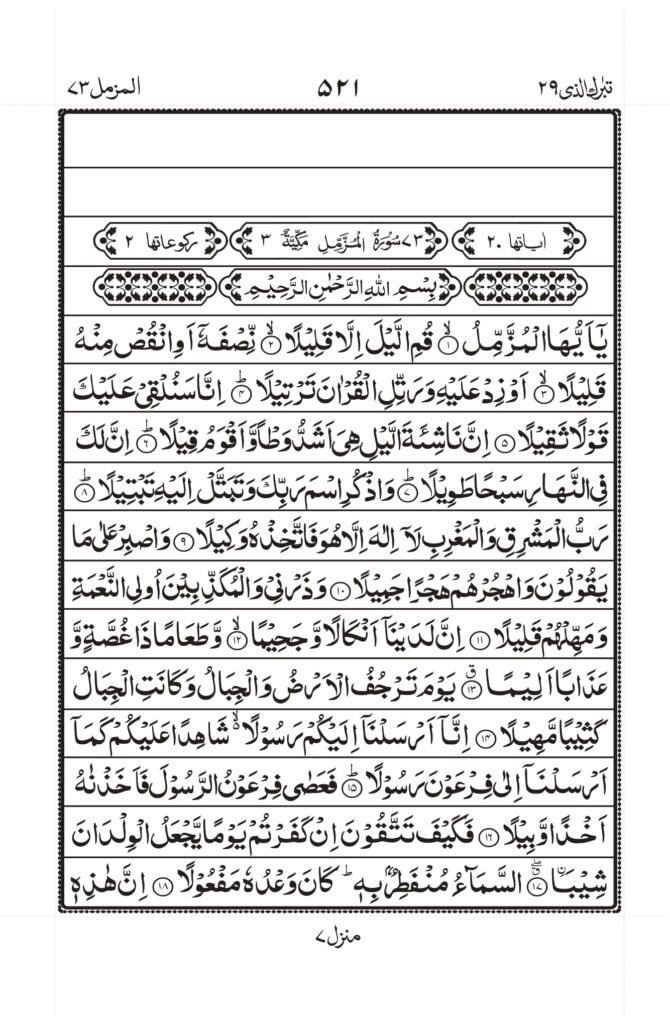 تبٰرك الذی ۲۹
۵۲۱
المزمل ۷۳
اٰیاتها ۲۰
۷۳ سُوْرَةُ الْمُزَّمِّلِ مَكِّيَّةٌ ۳
رکوعاتها ۲
بِسْمِ اللهِ الرَّحْمٰنِ الرَّحِيْمِ
يٰٓاَيُّهَا الْمُزَّمِّلُ ۙ﴿۱﴾ قُمِ الَّيْلَ اِلَّا قَلِيْلًا ۙ﴿۲﴾ نِّصْفَهٗٓ اَوِ انْقُصْ مِنْهُ
قَلِيْلًا ۙ﴿۳﴾ اَوْ زِدْ عَلَيْهِ وَرَتِّلِ الْقُرْاٰنَ تَرْتِيْلًا ؕ﴿۴﴾ اِنَّا سَنُلْقِيْ عَلَيْكَ
قَوْلًا ثَقِيْلًا ﴿۵﴾ اِنَّ نَاشِئَةَ الَّيْلِ هِيَ اَشَدُّ وَطْاً وَّاَقْوَمُ قِيْلًا ؕ﴿۶﴾ اِنَّ لَكَ
فِي النَّهَارِ سَبْحًا طَوِيْلًا ؕ﴿۷﴾ وَاذْكُرِ اسْمَ رَبِّكَ وَتَبَتَّلْ اِلَيْهِ تَبْتِيْلًا ؕ﴿۸﴾
رَبُّ الْمَشْرِقِ وَالْمَغْرِبِ لَاۤ اِلٰهَ اِلَّا هُوَ فَاتَّخِذْهُ وَكِيْلًا ﴿۹﴾ وَاصْبِرْ عَلٰى مَا
يَقُوْلُوْنَ وَاهْجُرْهُمْ هَجْرًا جَمِيْلًا ﴿۱۰﴾ وَذَرْنِيْ وَالْمُكَذِّبِيْنَ اُولِي النَّعْمَةِ
وَمَهِّلْهُمْ قَلِيْلًا ﴿۱۱﴾ اِنَّ لَدَيْنَاۤ اَنْكَالًا وَّجَحِيْمًا ۙ﴿۱۲﴾ وَّطَعَامًا ذَا غُصَّةٍ وَّ
عَذَابًا اَلِيْمًا ۗ﴿۱۳﴾ يَوْمَ تَرْجُفُ الْاَرْضُ وَالْجِبَالُ وَكَانَتِ الْجِبَالُ
كَثِيْبًا مَّهِيْلًا ﴿۱۴﴾ اِنَّاۤ اَرْسَلْنَاۤ اِلَيْكُمْ رَسُوْلًا ۙ شَاهِدًا عَلَيْكُمْ كَمَاۤ
اَرْسَلْنَاۤ اِلٰى فِرْعَوْنَ رَسُوْلًا ؕ﴿۱۵﴾ فَعَصٰى فِرْعَوْنُ الرَّسُوْلَ فَاَخَذْنٰهُ
اَخْذًا وَّبِيْلًا ﴿۱۶﴾ فَكَيْفَ تَتَّقُوْنَ اِنْ كَفَرْتُمْ يَوْمًا يَّجْعَلُ الْوِلْدَانَ
شِيْبَا ۗ﴿۱۷﴾ السَّمَآءُ مُنْفَطِرٌۢ بِهٖ ؕ كَانَ وَعْدُهٗ مَفْعُوْلًا ﴿۱۸﴾ اِنَّ هٰذِهٖ
منزل ۷